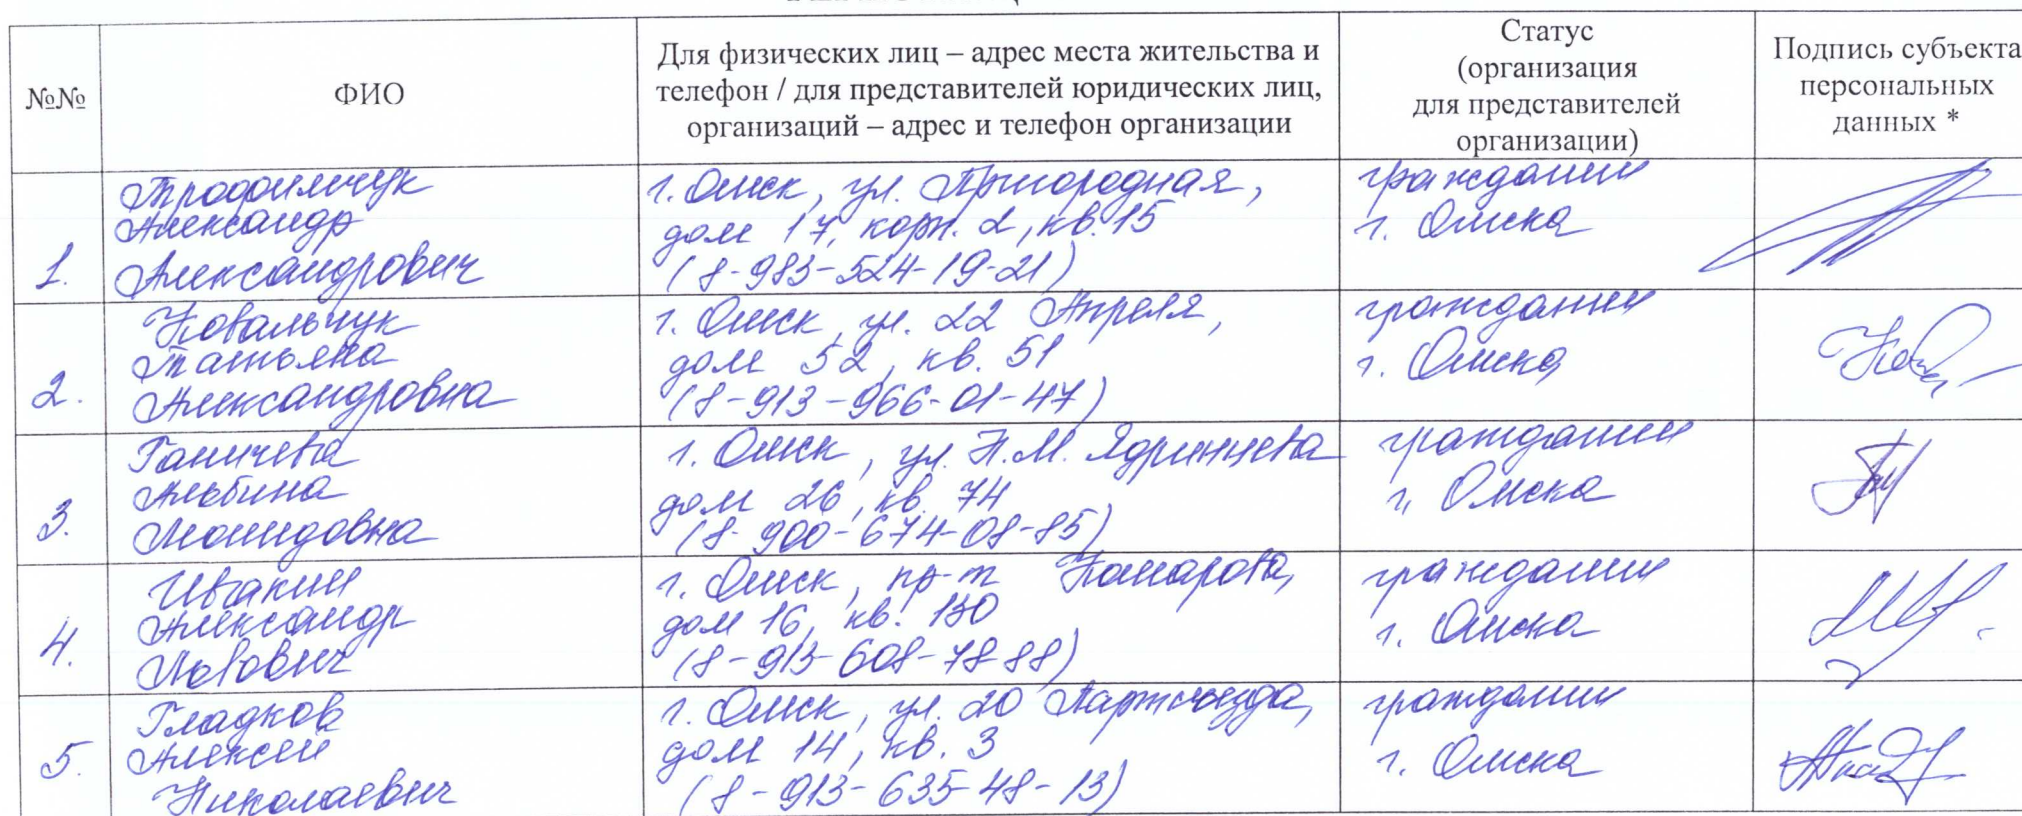 №№
ФИО
Для физических лиц – адрес места жительства и
телефон / для представителей юридических лиц,
организаций – адрес и телефон организации
Статус
(организация
для представителей
организации)
Подпись субъекта
персональных
данных *
1.
Трофимчук
Александр
Александрович
г. Омск, ул. Пригородная,
дом 17, корп. 2, кв. 15
(8-983-524-19-21)
гражданин
г. Омска
2.
Ковальчук
Татьяна
Александровна
г. Омск, ул. 22 Апреля,
дом 52, кв. 51
(8-913-966-01-47)
гражданин
г. Омска
3.
Ганичева
Альбина
г. Омск, ул. Н.М. Ядринцева
дом 26, кв. 74
(8-900-674-08-85)
гражданин
г. Омска
4.
Ивакин
Александр
Львович
г. Омск, пр-т Комарова,
дом 16, кв. 130
(8-913-608-78-88)
гражданин
г. Омска
5.
Гладков
Алексей
Николаевич
г. Омск, ул. 20 Партсъезда,
дом 14, кв. 3
(8-913-635-48-13)
гражданин
г. Омска